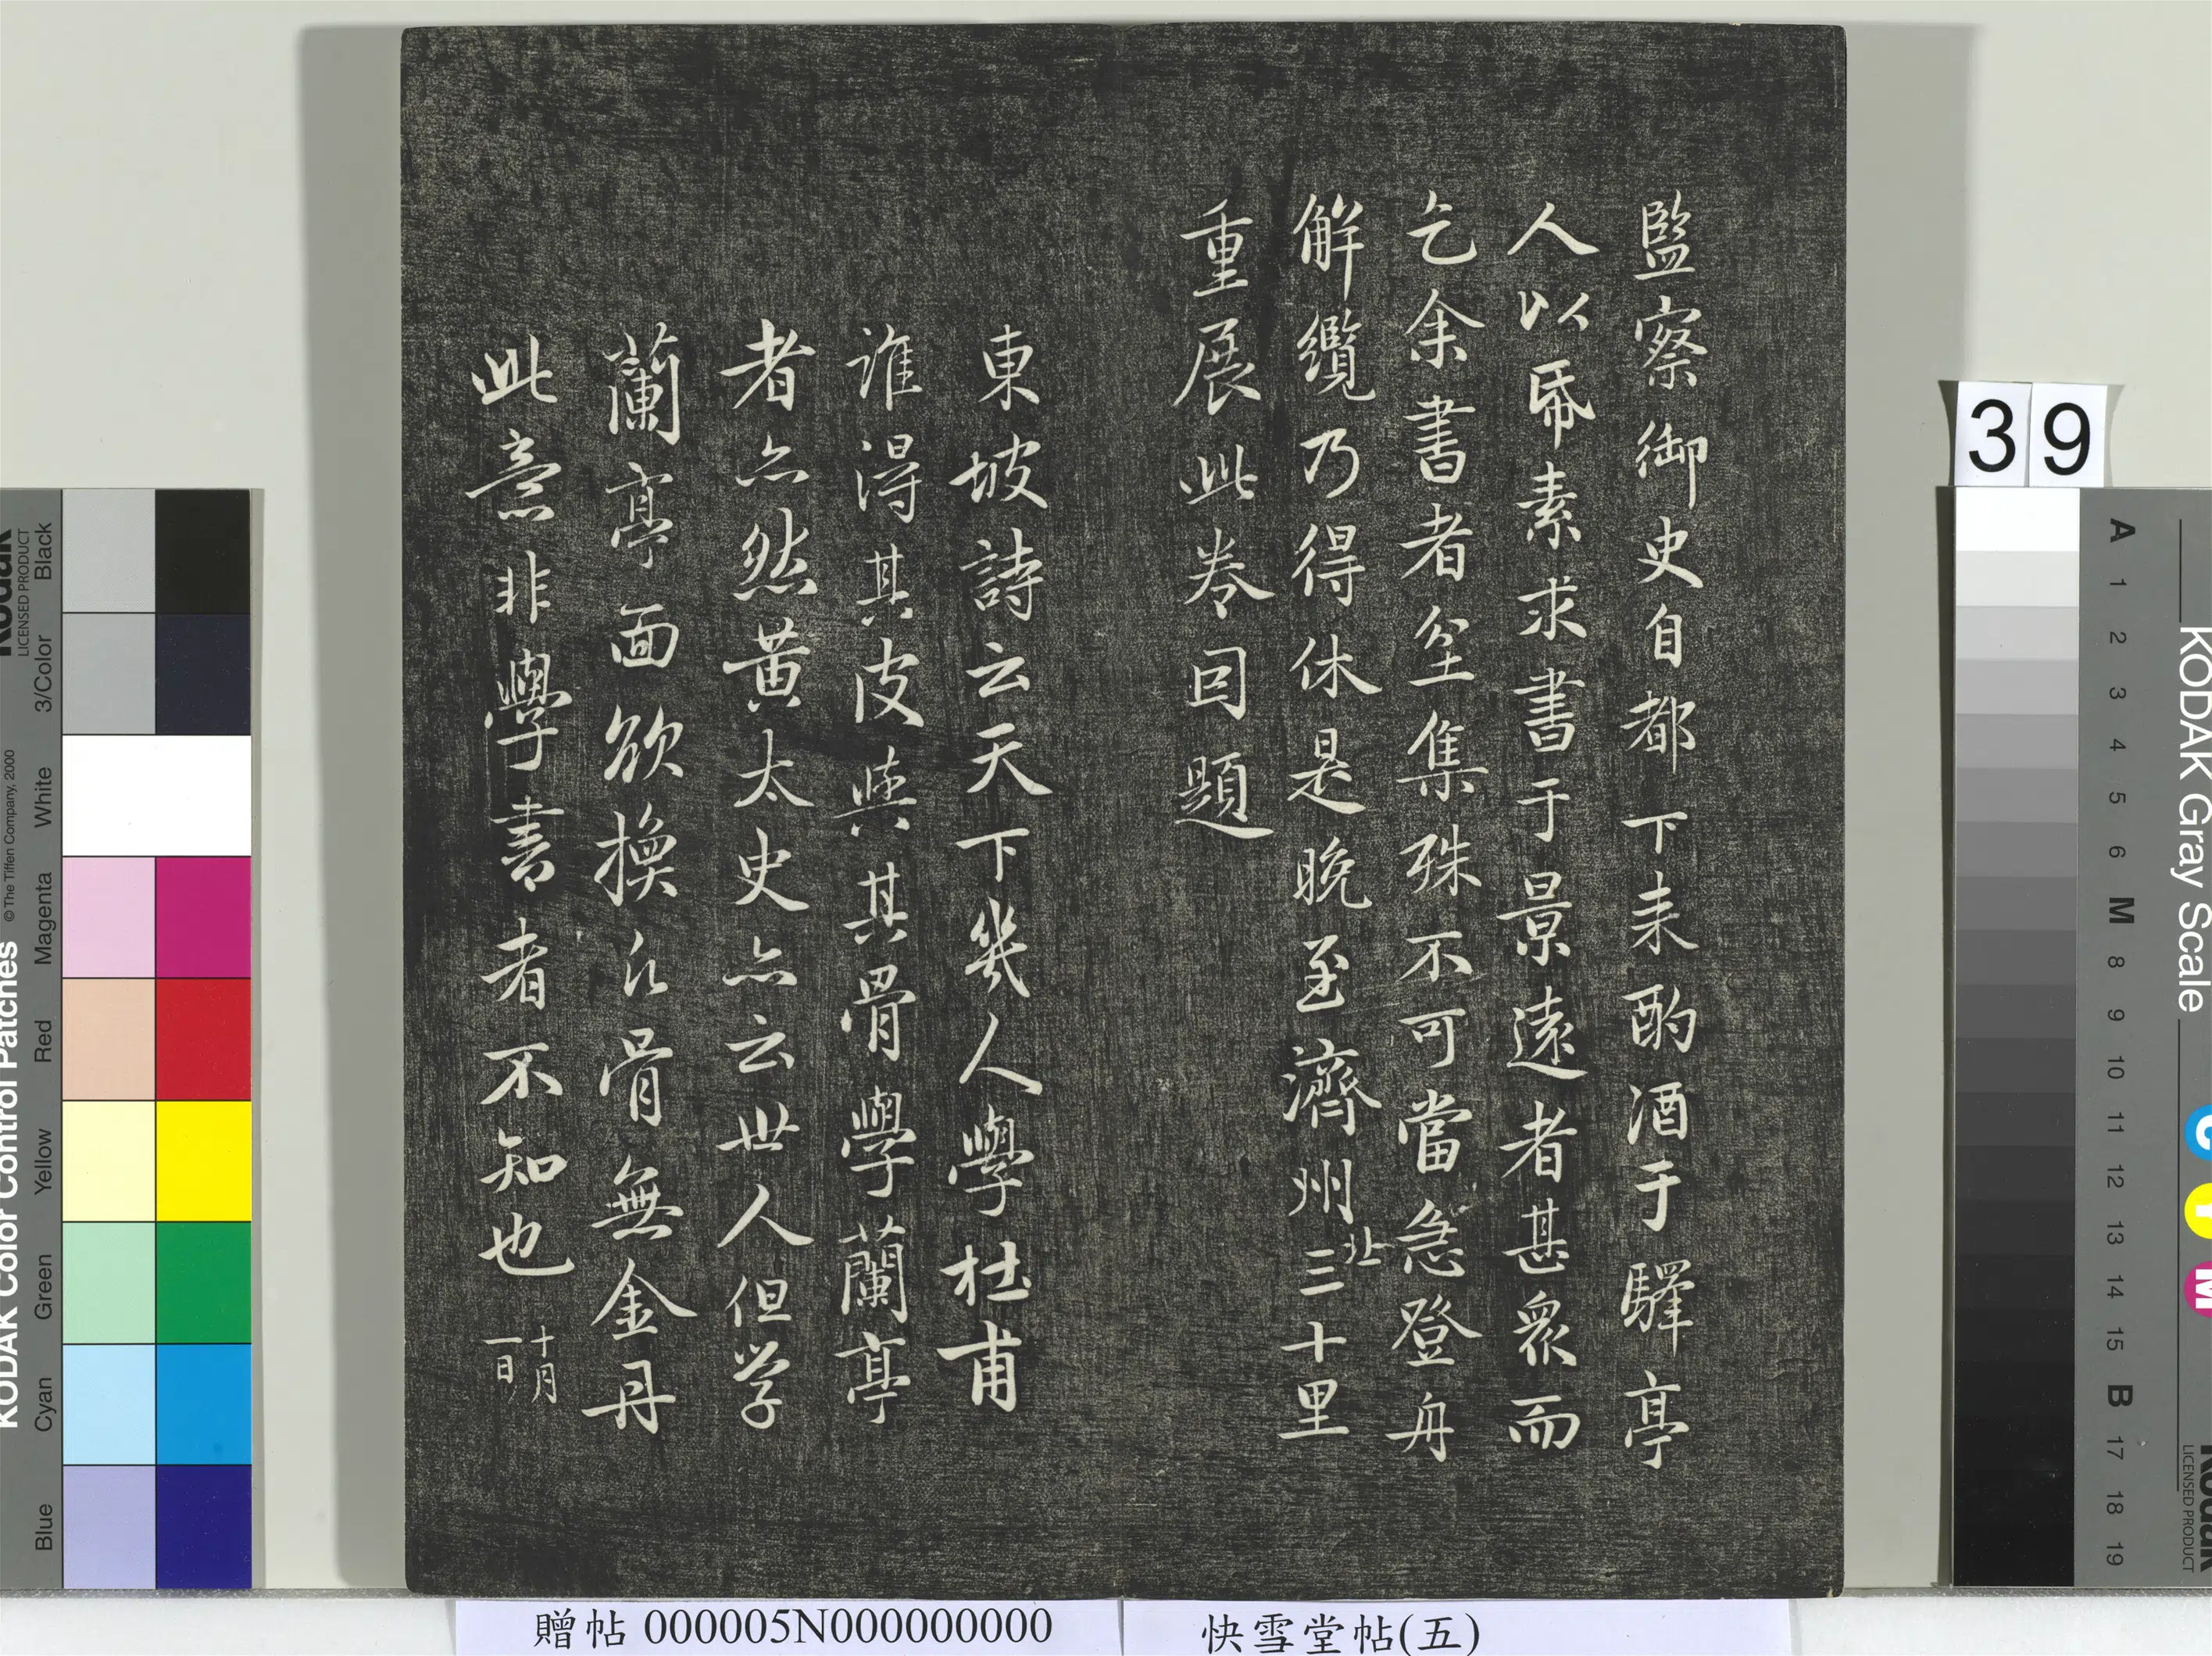 監察御史自都下来酌酒于驛亭
人以帋素求書于景遠者甚衆而
乞余書者坌集殊不可當急登舟
解纜乃得休是晚至濟州北三十里
重展此卷因題
東坡詩云天下幾人學杜甫
誰得其皮與其骨學蘭亭
者亦然黄太史亦云世人但学
蘭亭面欲換凡骨無金丹
此意非學書者不知也十月
一日
39
贈帖 000005N000000000
快雪堂帖(五)
KODAK Color Control Patches
© The Tiffen Company, 2000
Kodak
LICENSED PRODUCT
Black
3/Color
White
Magenta
Red
Yellow
Green
Cyan
Blue
KODAK Gray Scale
A 1 2 3 4 5 6 M 8 9 10 11 12 13 14 15 B 17 18 19
C
Y
M
Kodak
LICENSED PRODUCT